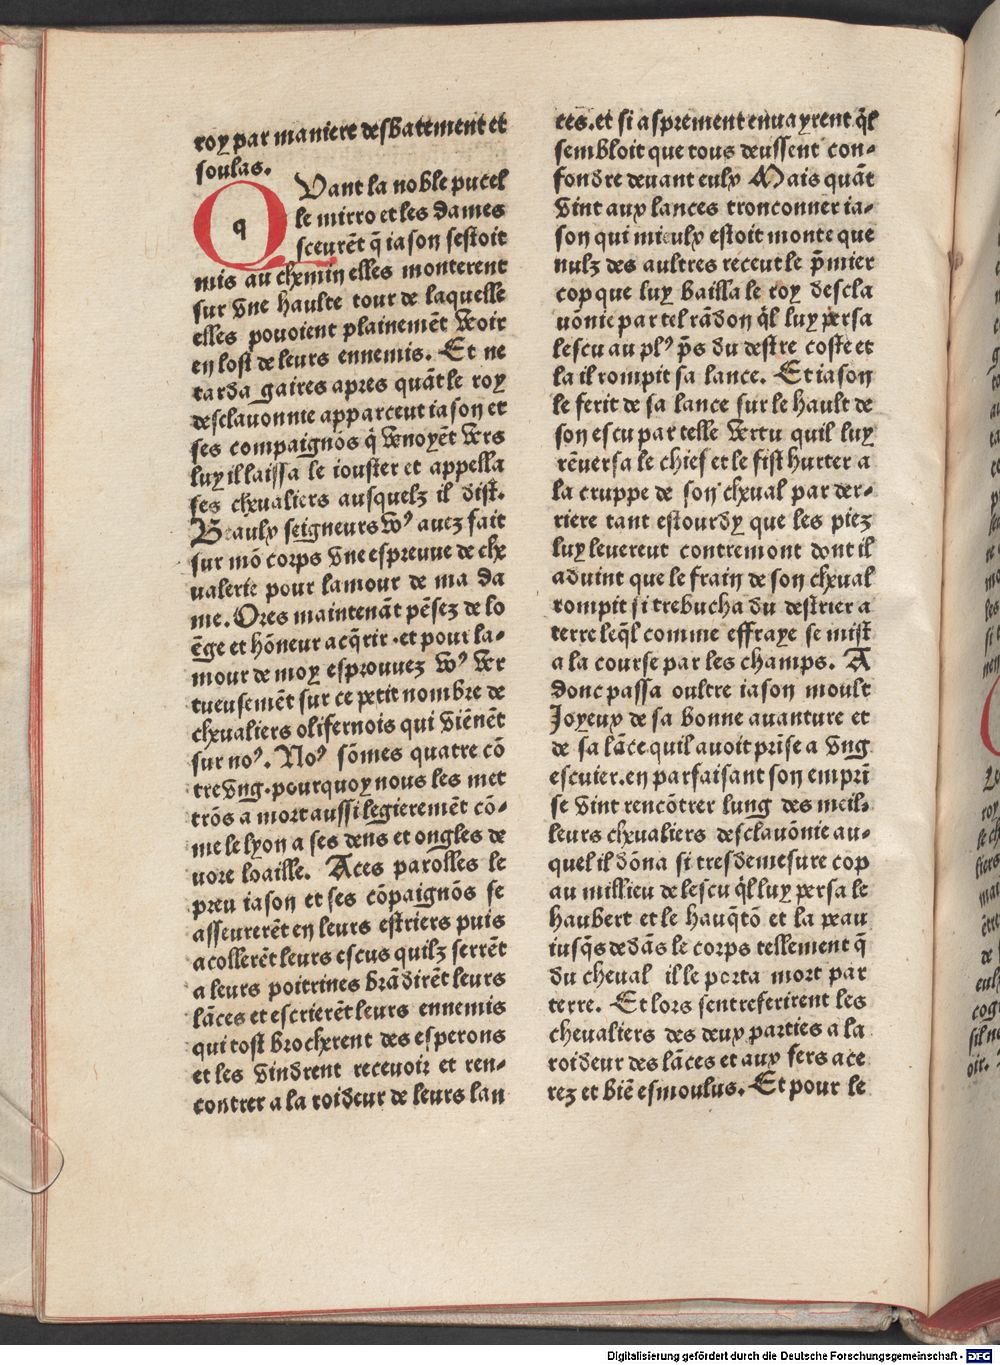 roy par maniere desbatement et
soulas.
QVant la noble pucel
le mirro et les dames
sceurēt q̄ iason sestoit
mis au chemin elles monterent
sur vne haulte tour de laquelle
elles pouoient plainemēt veoir
en lost de leurs ennemis. Et ne
tarda gaires apres quāt le roy
desclauonnie apparceut iason et
ses compaignōs q̇ venoyēt vers
luy il laissa le iouster et appella
ses cheualiers ausquelz il dist.
Beaulx seigneurs vo⁹ auez fait
sur mō corps vne espreuue de che
ualerie pour lamour de ma da
me. Ores maintenāt pēsez de lo
ēge et hōneur acq̄rir .et pour la-
mour de moy esprouuez vo⁹ ver
tueusemēt sur ce petit nombre de
cheualiers olifernois qui viēnēt
sur no⁹. No⁹ sōmes quatre cō
tre vng. pourquoy nous les met
trōs a mort aussi legieremēt cō-
me le lyon a ses dens et ongles de
uore loaille. Aces parolles le
preu iason et ses cōpaignōs se
asseurerēt en leurs estriers puis
acollerēt leurs escus quilz serrēt
a leurs poitrines brādirēt leurs
lāces et escrierēt leurs ennemis
qui tost brocherent des esperons
et les vindrent receuoir et ren-
contrer a la roideur de leurs lan
ces. et si asprement enuayrent q̄l
sembloit que tous deussent con-
fondre deuant eulx Mais quāt
vint aux lances tronconner ia-
son qui mieulx estoit monte que
nulz des aultres receut le p̄mier
cop que luy bailla le roy descla
uōnie par tel rādon q̄l luy persa
lescu au pl⁹ p̄s du destre coste et
la il rompit sa lance. Et iason
le ferit de sa lance sur le hault de
son escu par telle vertu quil luy
rēuersa le chief et le fist hurter a
la cruppe de son cheual par der-
riere tant estourdy que les piez
luy leuereut contremont dont il
aduint que le frain de son cheual
rompit si trebucha du destrier a
terre leq̄l comme effraye se mist
a la course par les champs. A
donc passa oultre iason moult
Joyeux de sa bonne auanture et
de sa lāce quil auoit prise a vng
escuier. en parfaisant son emprī
se vint rencōtrer lung des meil-
leurs cheualiers desclauōnie au-
quel il dōna si tresdemesure cop
au millieu de lescu q̄l luy persa le
haubert et le hauq̄tō et la peau
iusq̄s dedās le corps tellement q̄
du cheual il le porta mort par
terre. Et lors sentreferirent les
cheualiers des deux parties a la
roideur des lāces et aux fers ace
rez et biē esmoulus. Et pour le
Digitalisierung gefördert durch die Deutsche Forschungsgemeinschaft - DFG